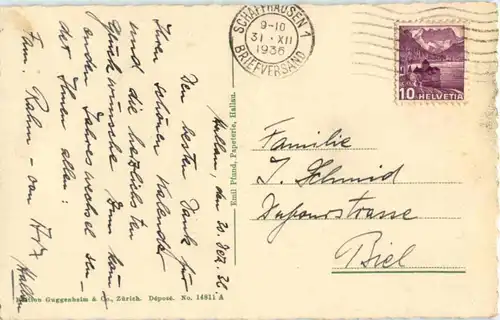 Hallau, den 30. Dez. 36
Den besten Dank für
Ihren schönen Kalender
und die herzlichsten
Glückwünsche zum kom-
menden Jahreswechsel sen-
det Ihnen allen:
Fam. Rahm - von
Hallau
Emil Pfund, Papeterie, Hallau.
Edition Guggenheim & Co., Zürich. Déposé. No. 14811 A
SCHAFFHAUSEN 1
9-10
31. XII
1936
BRIEFVERSAND
10 HELVETIA
Familie
J. Schmid
Dufourstrasse
Biel